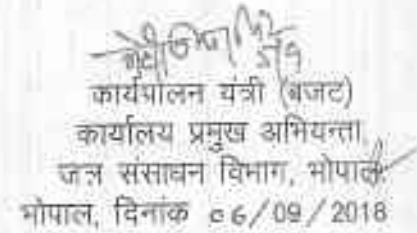 कार्यपालन यंत्री (बजट)
कार्यालय प्रमुख अभियन्ता,
जल संसाधन विभाग, भोपाल
भोपाल, दिनांक 06/09/2018